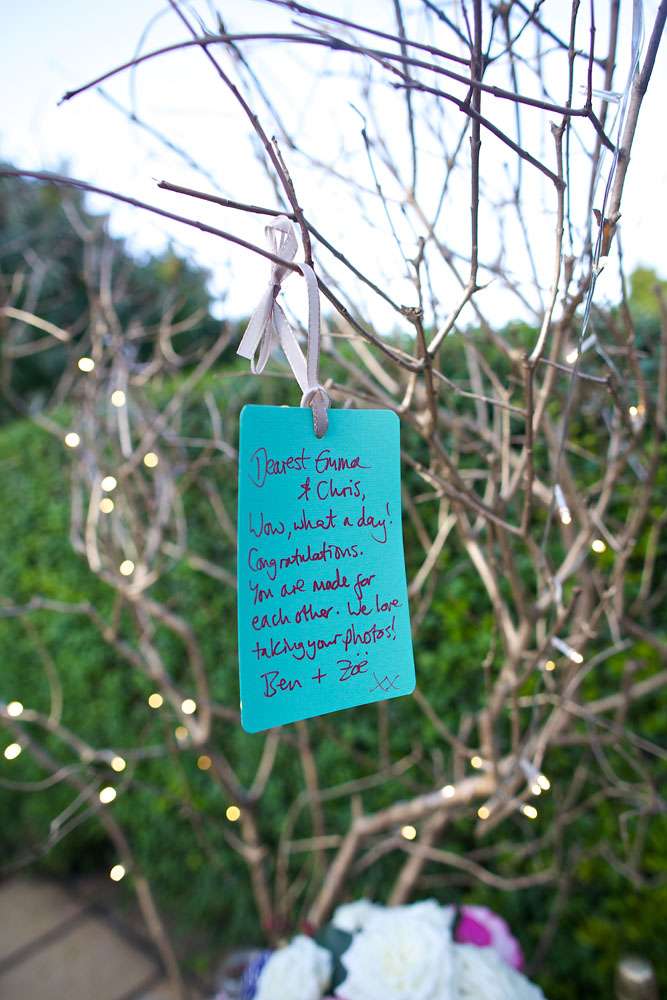 Dearest Emma
& Chris,
Wow, what a day!
Congratulations.
You are made for
each other. We love
taking your photos!
Ben + Zoë
xx